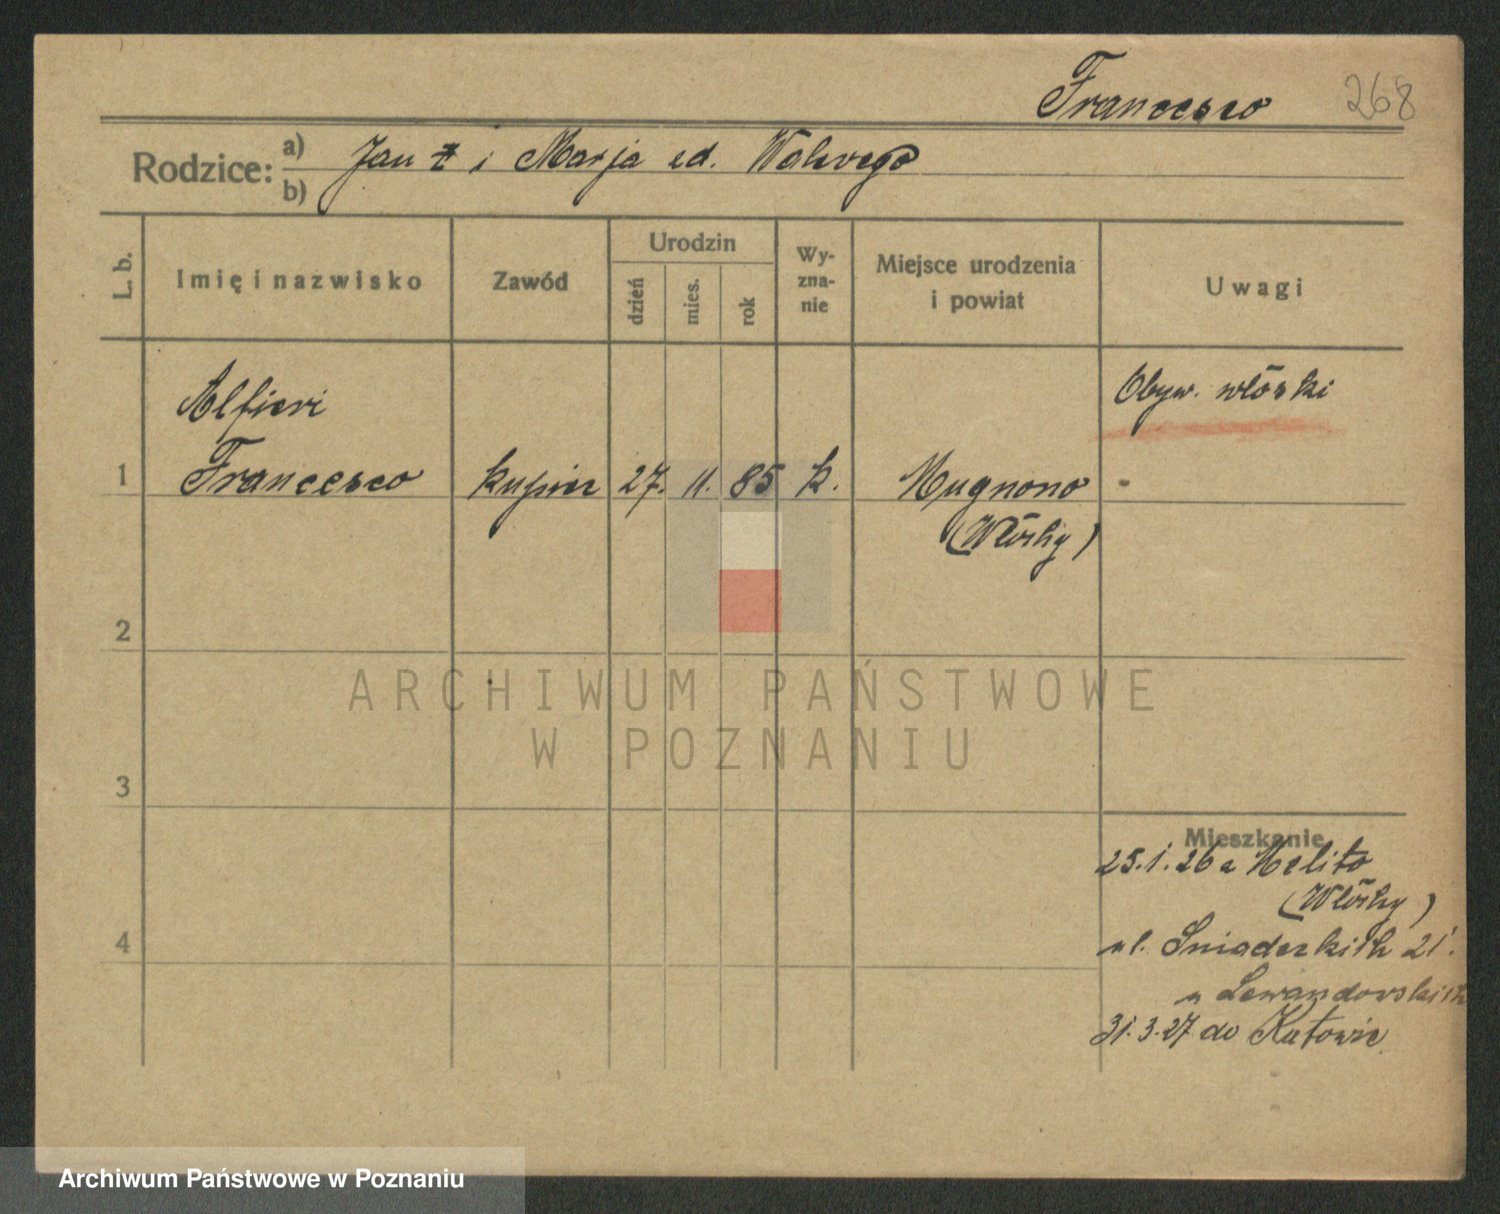 Francesco 268
Rodzice: a) Jan ‡ i Marja zd. Walvege
b)
L. b.
Imię i nazwisko
Zawód
Urodzin
dzień
mies.
rok
Wy-
zna-
nie
Miejsce urodzenia
i powiat
Uwagi
Alfieri
Obyw. włoski
1 Francesco kupiec 27. 11. 85 k. Mugnono
(Włochy)
2
ARCHIWUM PAŃSTWOWE
W POZNANIU
3
Mieszkanie
25.1.26 z Melito
(Włochy)
4
ul. Sniadeckich 21.
u Lewandowskich
31.3.27 do Katowic
Archiwum Państwowe w Poznaniu